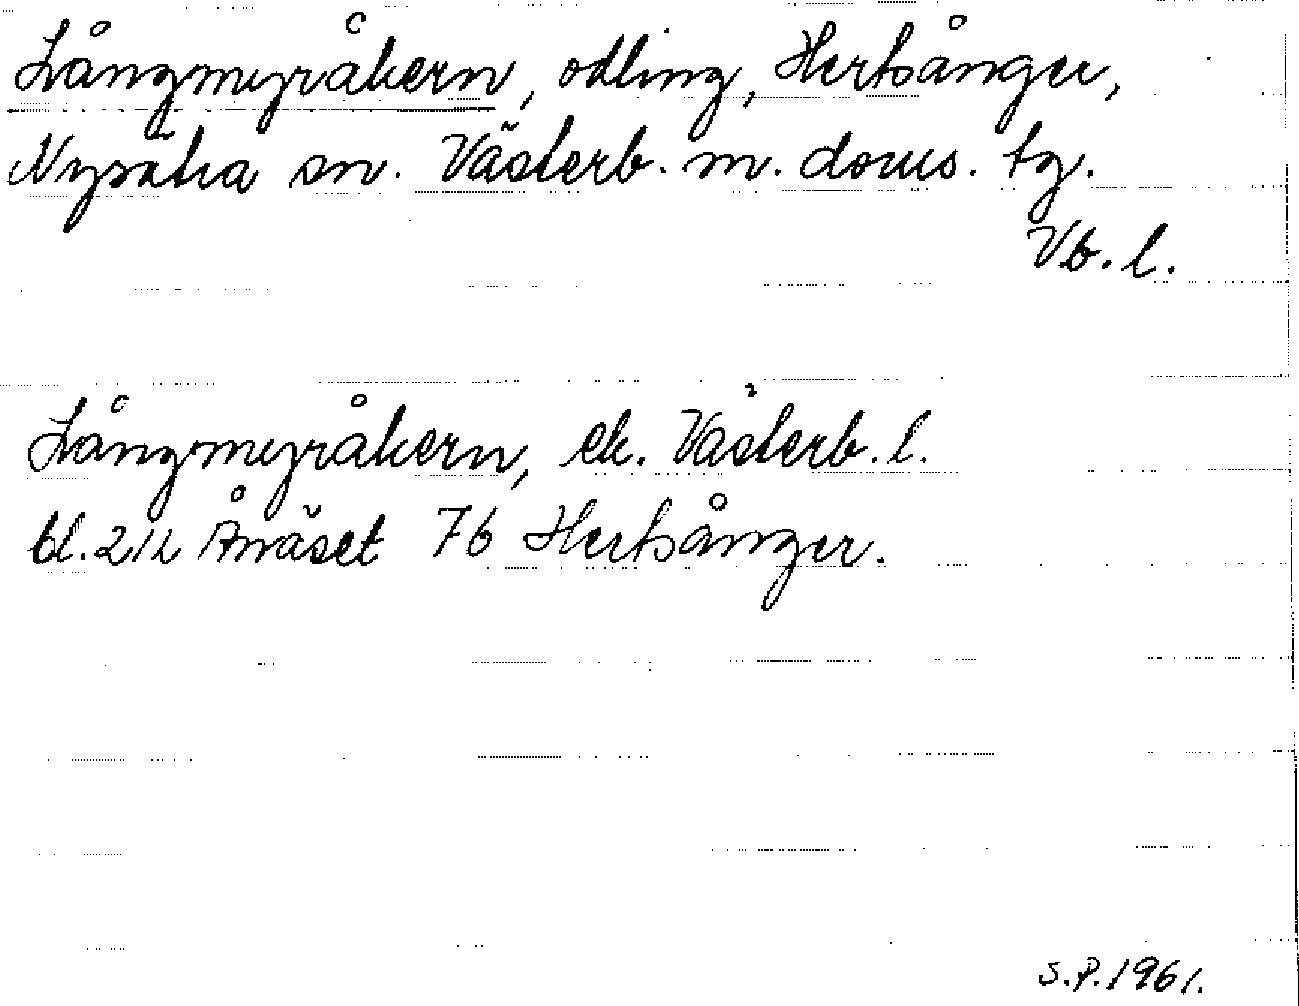 Långmyråkern, odling, Hertsånger,
Nysätra sn. Västerb. m. doms. tg.
Vb. l.
Långmyråkern, ek. Västerb. l.
bl. 21k Ånäset 76 Hertsånger.
S.P. 1961.